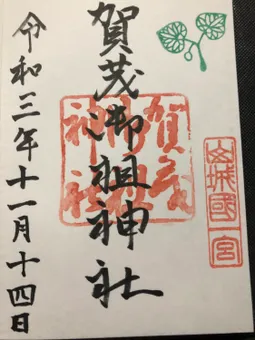 山城國一宮
賀茂御祖神社
賀茂御祖神社
令和三年十一月十四日